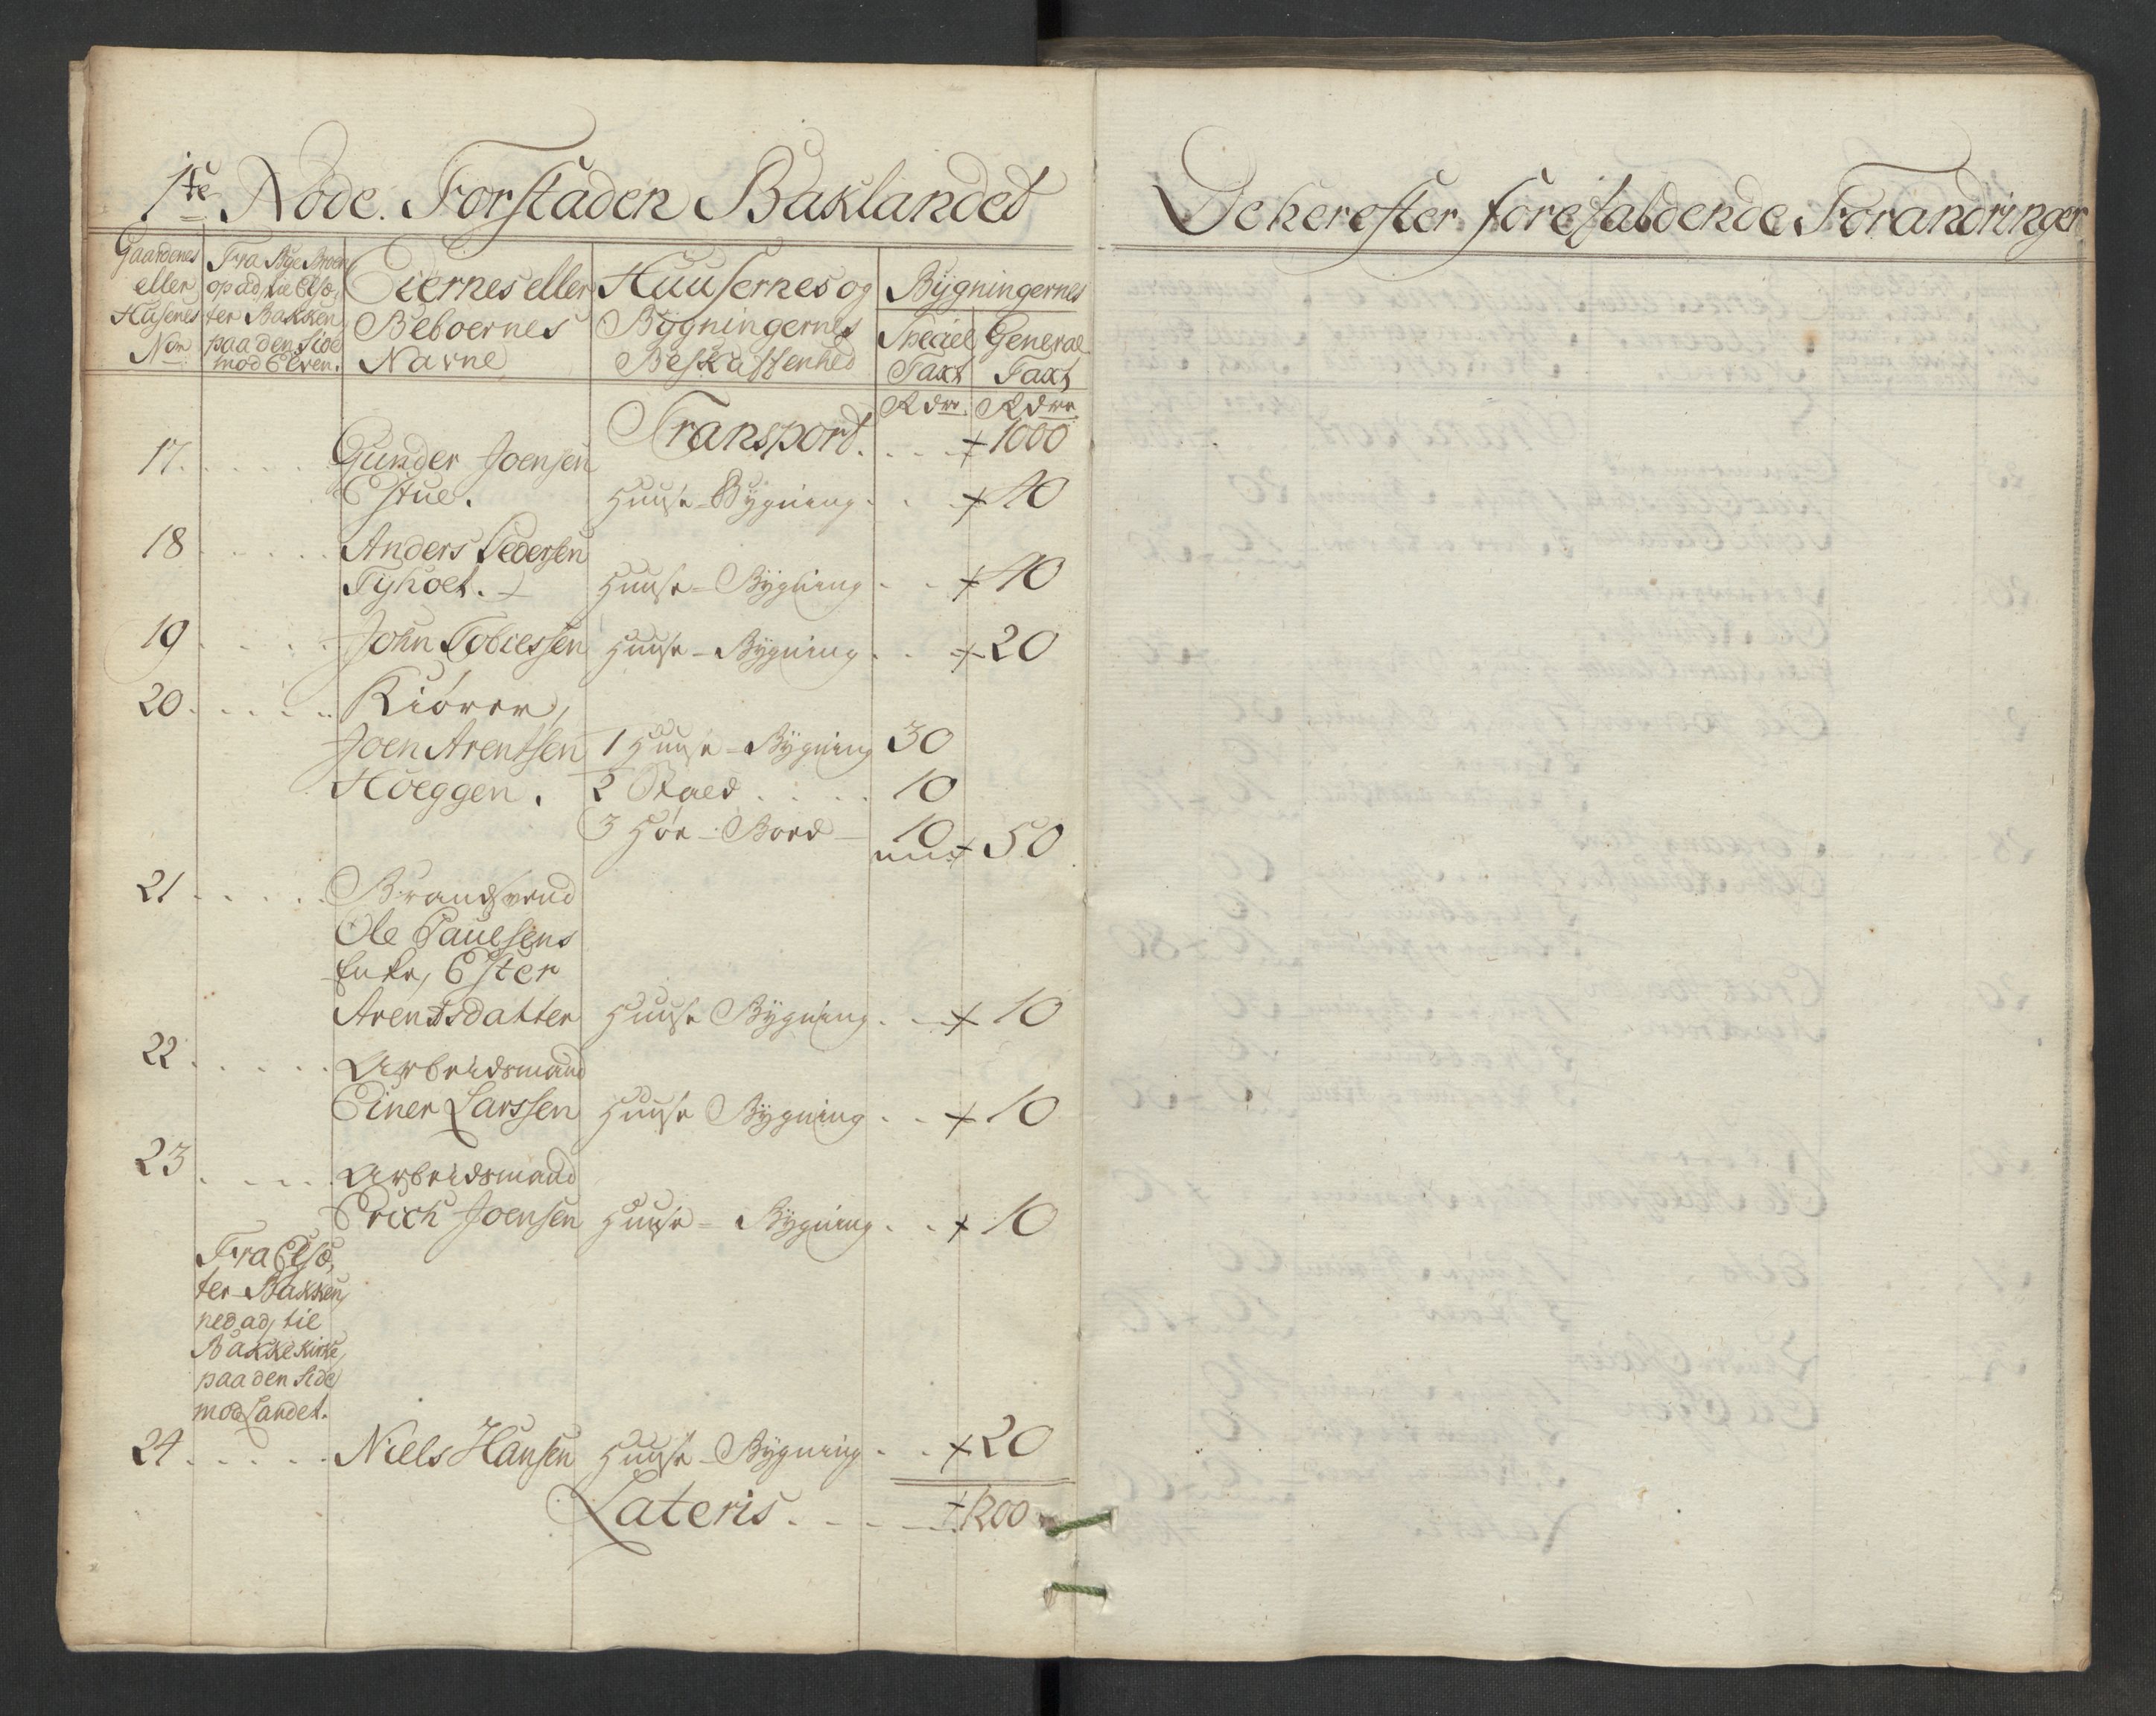 1te Rode. Forstaden Baklandet
Gaardenes eller Husenes Nor
Fra Bye Broen opad, til Elsæ, ter Bakken, paa den Side mod Elven.
Eiernes eller Beboernes Navne
Huusernes og Bygningernes Beskaffenhed
Bygningernes
Speciel Taxt
General Taxt
Rdrs. Rdrs.
Transport. . . . + 1000
17. . . . . Gunder Joensen
Estue. Huuse-Bygning . . . + 40
18 . . . . . Anders Pedersen
Tyholt. Huuse-Bygning . . + 40
19 . . . . John Tobiessen Huuse-Bygning . . . + 20
20. . . . . Kiører,
Joen Arentsen 1 Huuse-Bygning 30
Höeggen. 2 Stald . . . . 10
3 Høe-Bord 10 + 50
21 . . . . . Brandsvend
Ole Paulsens
Enke, Ester
Arentsdatter Huuse Bygning . . + 10
22 . . . . . Arbeidsmand
Einer Larssen Huuse Bygning . . + 10
23 . . . . Arbeidsmand
Erich Joensen Huuse-Bygning . . + 10
Fra Elsæ,
ter-Bakken,
ned ad, til
Bakke kirke,
paa den Side
mod Landet.
24 . . . . . Niels Hansen Huuse-Bygning . . + 20
Lateris . . . . + 1200
De herefter forefaldende Forandringer